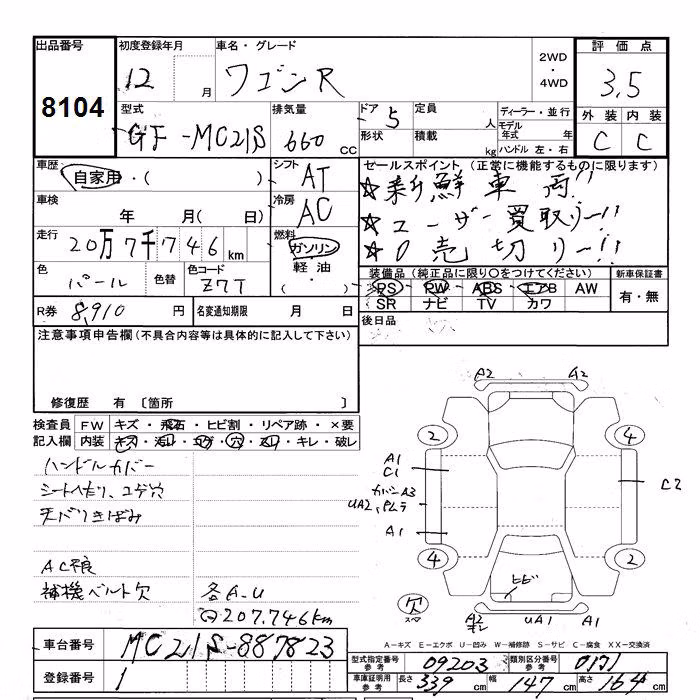 出品番号 初度登録年月 車名・グレード 評価点
8104 12 月 ワゴンR 2WD・4WD 3.5
型式 排気量 ドア 5 定員 人 ディーラー・並行 外装 内装
GF-MC21S 660 CC 形状 積載 kg モデル年式 年 ハンドル 左・右 C C
車歴 自家用・( ) シフト AT セールスポイント (正常に機能するものに限ります)
☆新鮮車両!!
車検 年 月( 日) 冷房 AC ☆ユーザー買取リー!!
走行 20万7千746km 燃料 ガソリン 軽油 ( ・ ) ☆0売切リー!!
色 パール 色替 色コード Z7T 装備品 (純正品に限り〇をつけてください) 新車保証書
PS PW ABS エアB AW 有・無
R券 8,910 円 名変通知期限 月 日 SR ナビ TV カワ
後日品
注意事項申告欄 (不具合内容等は具体的に記入して下さい)
修復歴 有 〔箇所 〕
検査員 FW キズ・飛石・ヒビ割・リペア跡・×要
記入欄 内装 キズ・汚レ・コゲ・穴・スレ・キレ・破レ
ハンドルカバー
シートヘタリ、コゲ穴
天バリきばみ
AC不良
補機ベルト欠 各A.U
207.746km
A2 A2
2 4
A1
C1 C2
カバンA3
UA2,
A1
4 2
ヒビ
欠
スペア A2 UA1 A1
キレ
A=キズ E=エクボ U=凹み W=補修跡 S=サビ C=腐食 XX=交換済
車台番号 MC21S-887823
型式指定番号 参考 09203 類別区分番号 参考 0171
登録番号 1 車庫証明用 参考 長さ 339 cm 幅 147 cm 高さ 164 cm